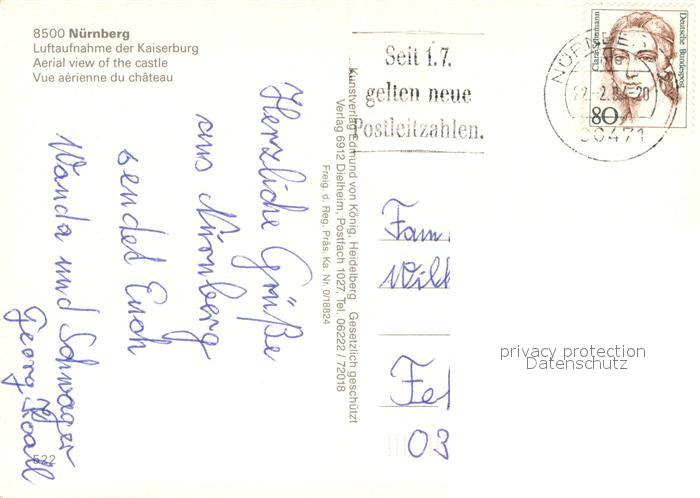 8500 Nürnberg
Luftaufnahme der Kaiserburg
Aerial view of the castle
Vue aérienne du château
Herzliche Grüße
aus Nürnberg
sendet Euch
Wanda und Schwager
Georg
522
Kunstverlag Edmund von König, Heidelberg Gesetzlich geschützt
Verlag 6912 Dielheim, Postfach 1027, Tel. 06222 / 72018
Freig. d. Reg. Präs. Ka. Nr. 0/18824
Seit 1.7.
gelten neue
Postleitzahlen.
90471
Deutsche Bundespost
Clara Schumann
80
Fam.
Wilk
Fel
03
privacy protection
Datenschutz